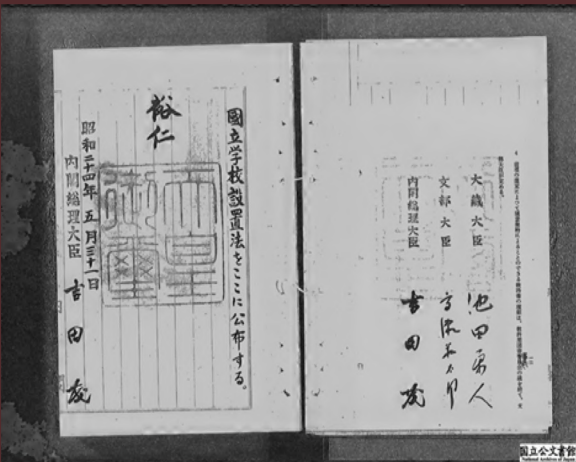 國立学校設置法をここに公布する。
裕仁
天皇御璽
昭和二十四年五月三十一日
内閣総理大臣 吉田茂
大藏大臣 池田勇人
文部大臣 高瀬荘太郎
内閣総理大臣 吉田茂
国立公文書館
National Archives of Japan